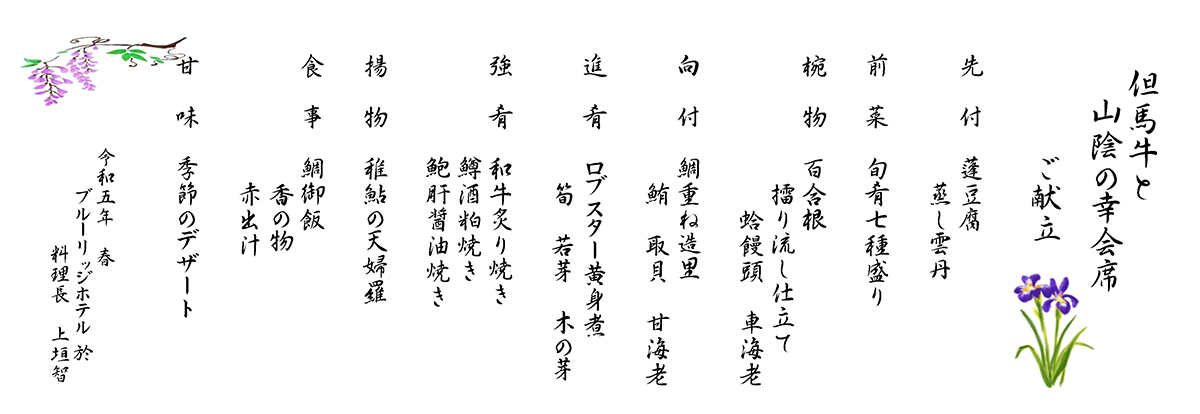 但馬牛と
山陰の幸会席
ご献立
先付 蓬豆腐
蒸し雲丹
前菜 旬肴七種盛り
椀物 百合根
擂り流し仕立て
蛤饅頭 車海老
向付 鯛重ね造里
鮪 取貝 甘海老
進肴 ロブスター黄身煮
筍 若芽 木の芽
強肴 和牛炙り焼き
鱒酒粕焼き
鮑肝醤油焼き
揚物 稚鮎の天婦羅
食事 鯛御飯
香の物
赤出汁
甘味 季節のデザート
令和五年 春
ブルーリッジホテル 於
料理長 上垣智